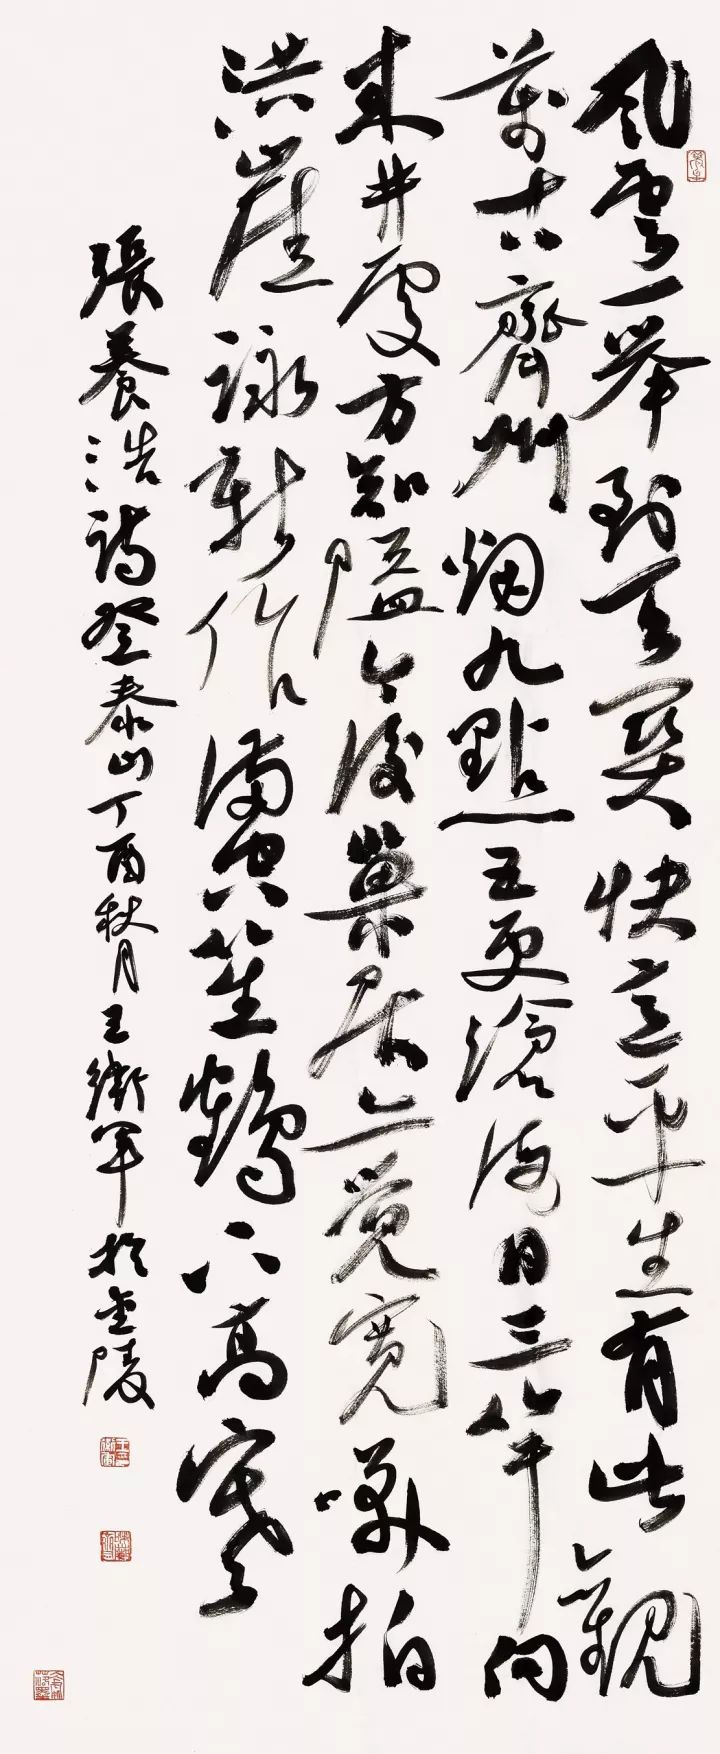 風雲一舉到天關快意平生有此觀
萬古齊州烟九點五更滄海日三竿向
來井處方知隘今後巢居亦覺寬咲拍
洪崖詠新作滿空笙鶴下高寒
張養浩詩登泰山丁酉秋月王衛軍於金陵